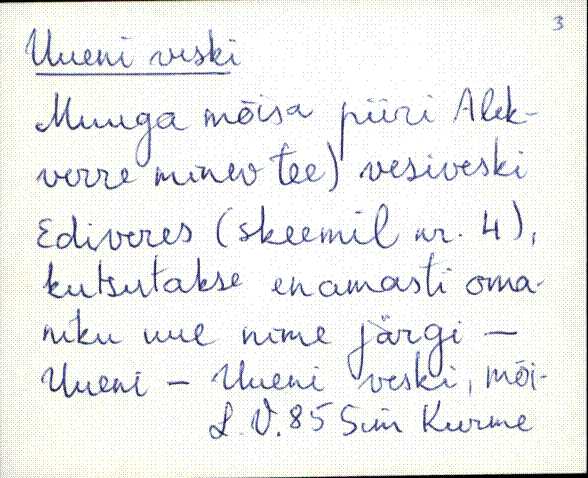 3
Uueni veski
Muuga mõisa piiri Alek-
verre minev tee) vesiveski
Ediveres (skeemil nr. 4),
kutsutakse enamasti oma-
niku uue nime järgi —
Uueni – Uueni veski, mõi-
L. V. 85 Siiri Kurme